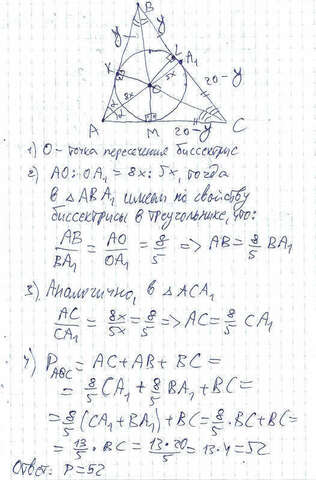 B
y y
K L A₁
8x 5x 20-y
O
A M 20-y C
1) O - точка пересечения биссектрис
2) AO:OA₁ = 8x:5x, тогда
в △ABA₁ имеем по свойству
биссектрисы в треугольнике, что:
AB/BA₁ = AO/OA₁ = 8/5 => AB = 8/5 BA₁
3) Аналогично, в △ACA₁
AC/CA₁ = 8x/5x = 8/5 => AC = 8/5 CA₁
4) P_ABC = AC + AB + BC =
= 8/5 CA₁ + 8/5 BA₁ + BC =
= 8/5 (CA₁ + BA₁) + BC = 8/5 · BC + BC =
= 13/5 · BC = 13·20/5 = 13·4 = 52
Ответ: P = 52